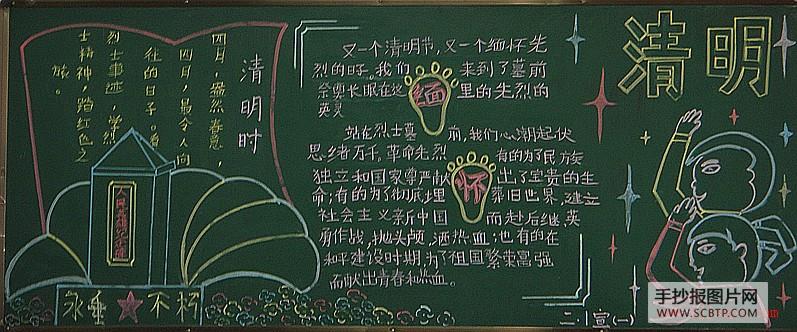 清明时
四月,盎然春意,
四月,最令人向
往的日子。看
烈士事迹,学烈
士精神,踏红色之
旅。
人民英雄纪念碑
永垂★不朽
又一个清明节,又一个缅怀先
烈的日子。我们来到了墓前
祭奠长眠在这里的先烈的
英灵
缅
站在烈士墓前,我们心潮起伏
思绪万千,革命先烈有的为了民族
独立和国家尊严献出了宝贵的生
命;有的为了彻底埋葬旧世界,建立
社会主义新中国而赴后继,英
勇作战,抛头颅,洒热血;也有的在
和平建设时期为了祖国繁荣富强
而献出青春和热血。
怀
清明
二.1宣(一)
手抄报图片网
WWW.SCBTP.COM